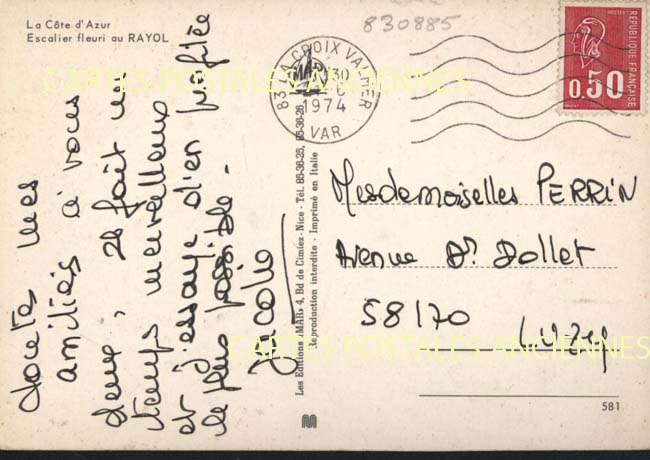 La Côte d'Azur
Escalier fleuri au RAYOL
830885
83 LA CROIX VALMER
1974
VAR
REPUBLIQUE FRANÇAISE
0,50
CARTES POSTALES ANCIENNES
toutes mes
amitiés à vous
deux, il fait un
temps merveilleux
et j'essaye d'en profiter
le plus possible.
Nicole
Les Editions "MAR" 4, Bd de Cimiez - Nice - Tél. 85-36-25, 85-36-26
Reproduction interdite - Imprimé en Italie
Mesdemoiselles PERRIN
Avenue Dr Dollet
58170 Luzy
CARTES POSTALES ANCIENNES
581